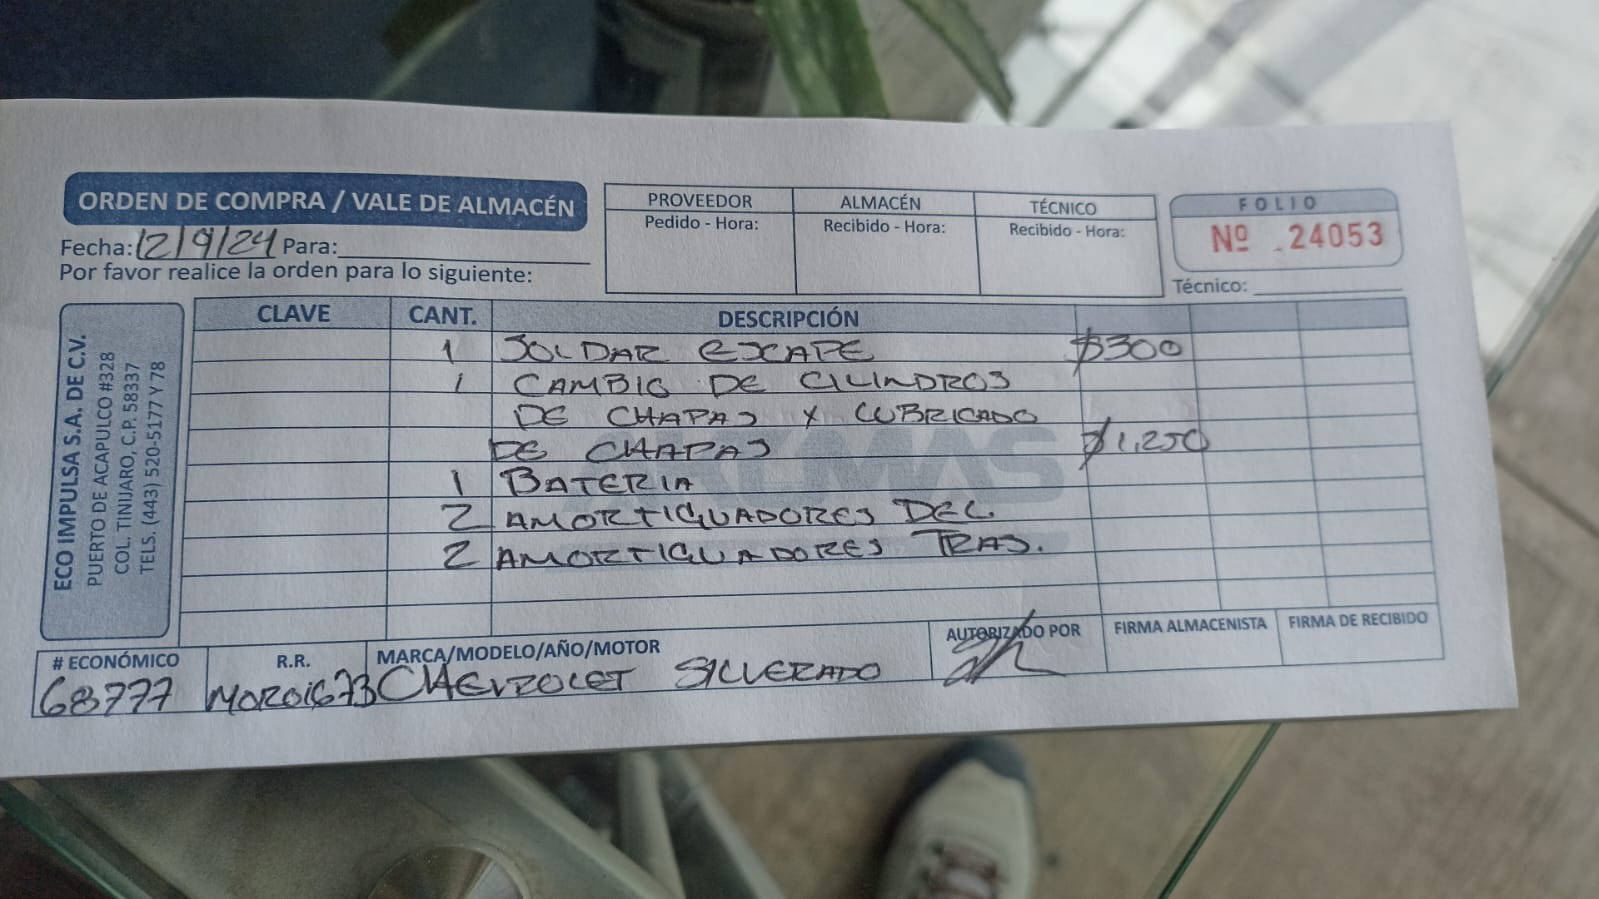 ORDEN DE COMPRA / VALE DE ALMACÉN
Fecha: 12/9/24 Para:
Por favor realice la orden para lo siguiente:
PROVEEDOR ALMACÉN TÉCNICO
Pedido - Hora: Recibido - Hora: Recibido - Hora:
FOLIO
Nº 24053
Técnico:
ECO IMPULSA S.A. DE C.V.
PUERTO DE ACAPULCO #328
COL. TINIJARO, C.P. 58337
TELS. (443) 520-5177 Y 78
CLAVE CANT. DESCRIPCIÓN
1 SOLDAR ESCAPE $300
1 CAMBIO DE CILINDROS
DE CHAPAS Y LUBRICADO
DE CHAPAS $1,250
1 BATERIA
2 AMORTIGUADORES DEL.
2 AMORTIGUADORES TRAS.
# ECONÓMICO R.R. MARCA/MODELO/AÑO/MOTOR AUTORIZADO POR FIRMA ALMACENISTA FIRMA DE RECIBIDO
68777 CHEVROLET SILVERADO